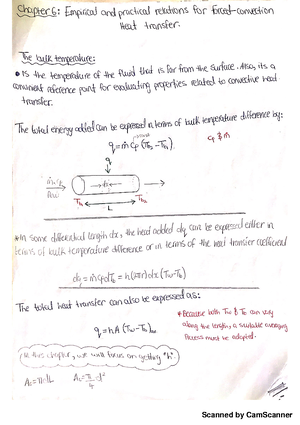 Chapter 6: Empirical and practical relations for forced-convection
Heat transfer.
The bulk temperature:
• Is the temperature of the fluid that is far from the surface. Also, its a
convenient reference point for evaluating properties related to convective heat
transfer.
The total energy added can be expressed in terms of bulk temperature difference by:
q = ṁ Cp (Tb₂ - Tb₁)
Cp & ṁ
q
dx
L
* In some differential length dx, the head added dq can be expressed either in
terms of bulk temperature difference or in terms of the heat transfer coefficient
dq = ṁ Cp dTb = h(2πr)dx (Tw - Tb)
The total heat transfer can also be expressed as:
q = hA (Tw - Tb)av
* Because both Tw & Tb can vary
along the length, a suitable averaging
Process must be adopted.
In this chapter, we will focus on getting "h".
Scanned by CamScanner